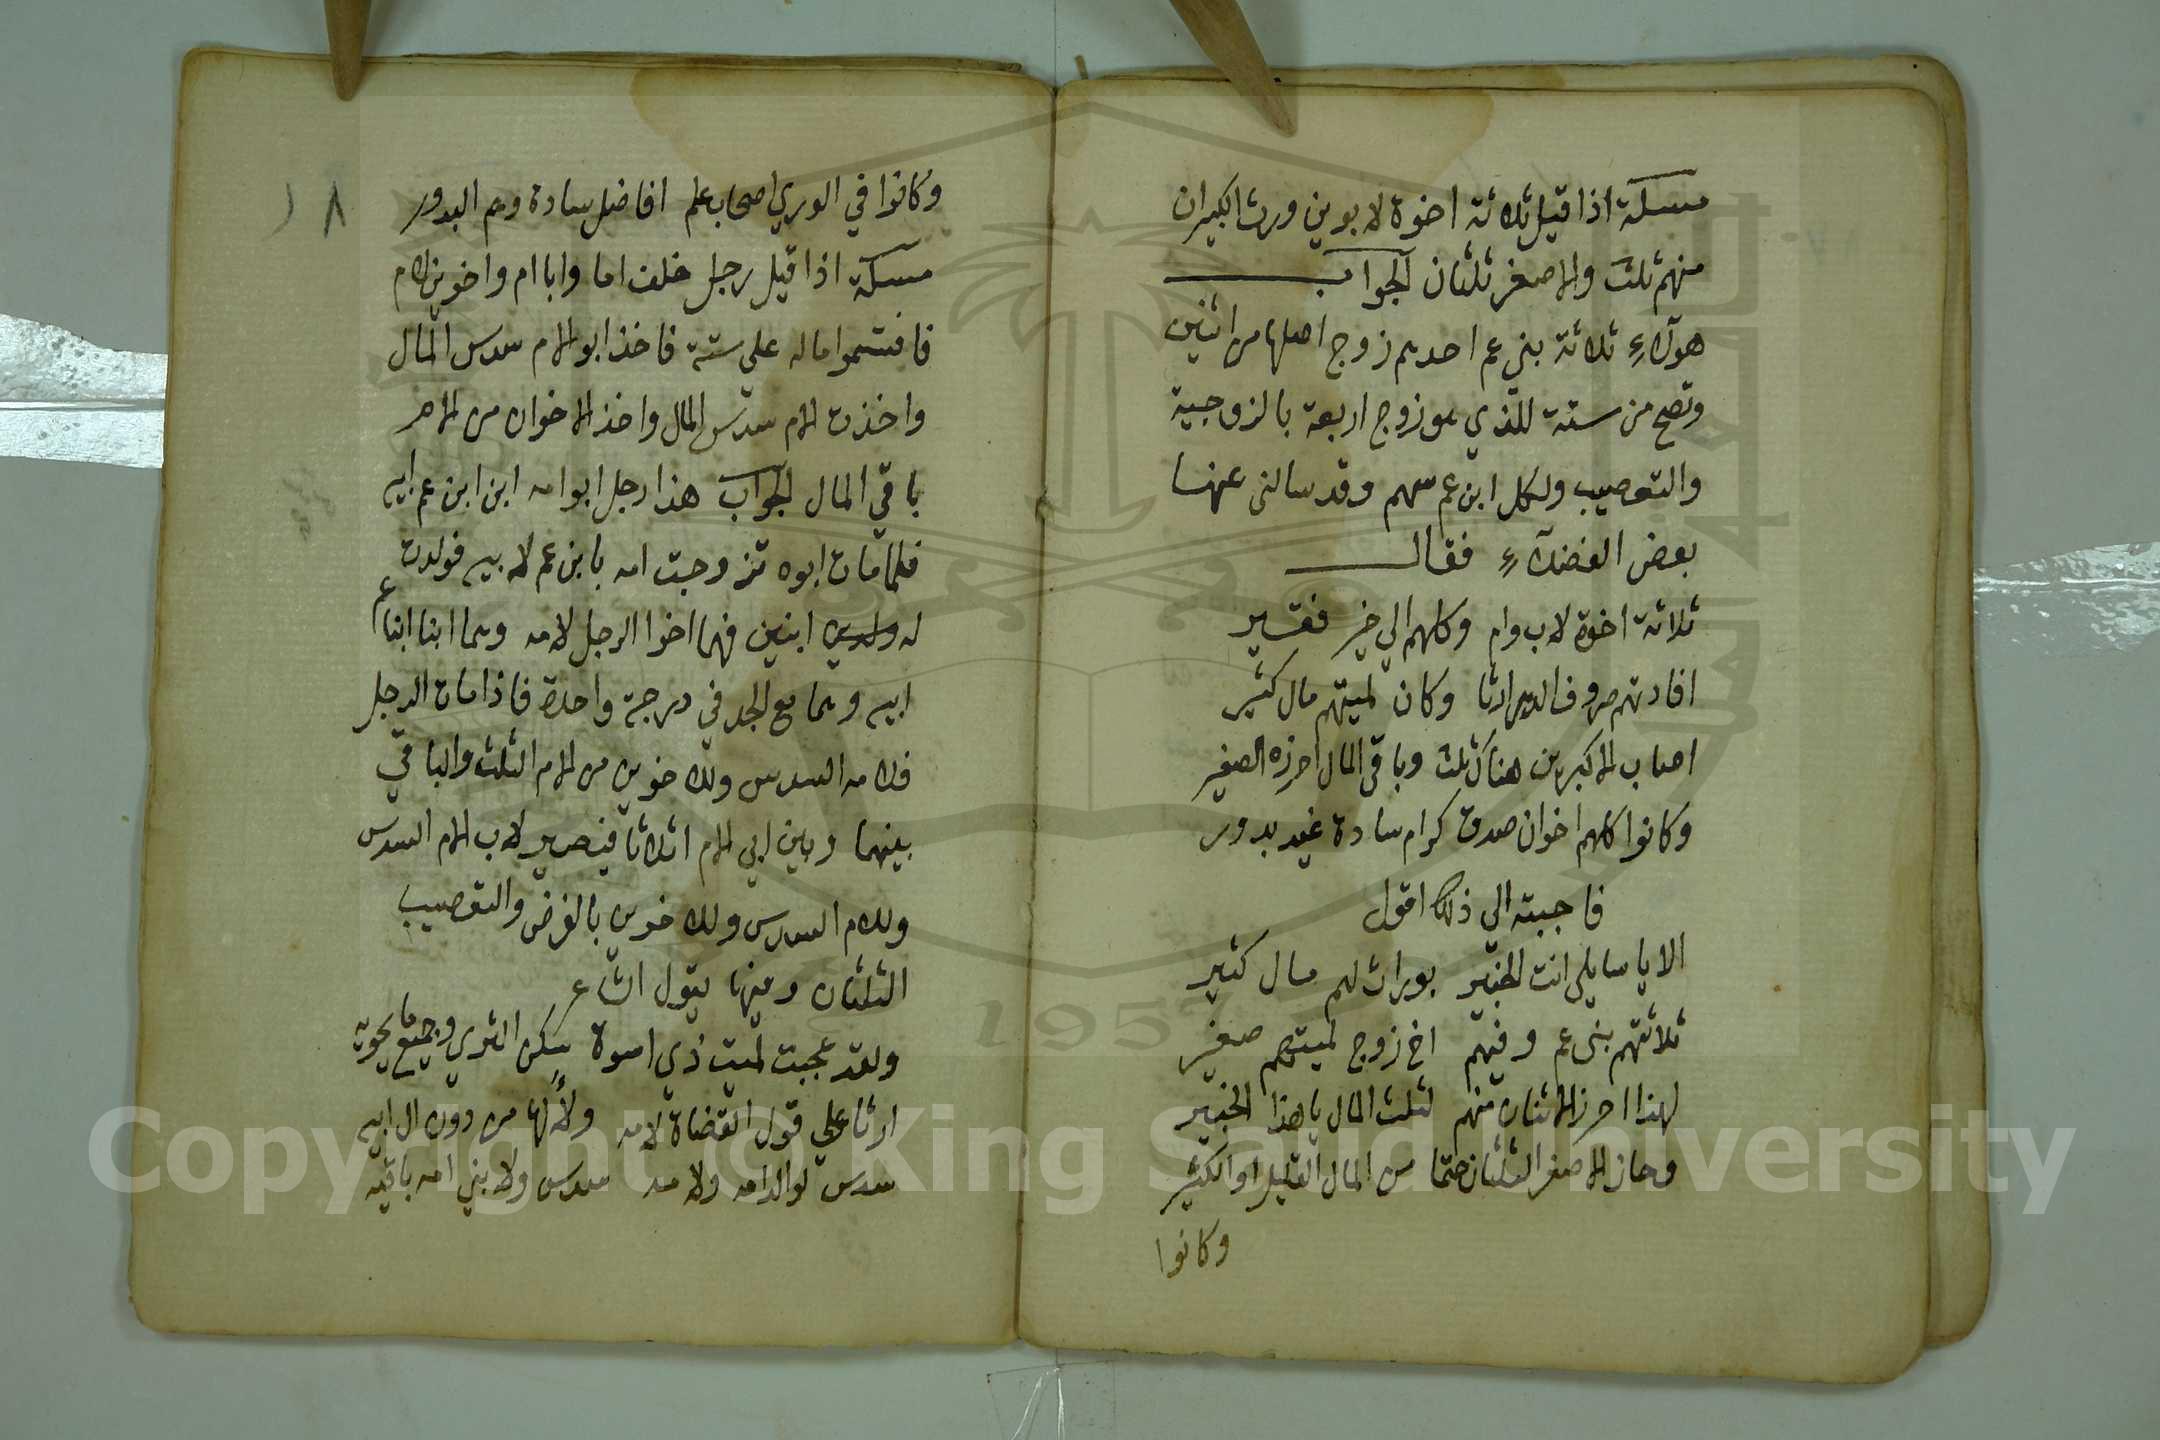 مسئلة اذا قيل ثلاثة اخوة لابوين ورث الكبيران
منهم ثلث والاصغر ثلثان الجواب
هولآء ثلاثة بني عم احدهم زوج اصلها من اثنين
وتصح من ستة للذي هو زوج اربعة بالزوجية
والتعصيب ولكل ابن عم سهم وقد سالني عنها
بعض الفضلآء فقال
ثلاثة اخوة لاب وام وكلهم الي خير فقير
افادتهم صروف الدهر ارثا وكان لميتهم مال كثير
اصاب الاكبرين هناك ثلث وباقي المال احرزه الصغير
وكانوا كلهم اخوان صدق كرام سادة غيد بدور
فاجبته الي ذلك اقول
الا يا سايلي انت الخبير بوراث لهم مال كثير
ثلاثتهم بني عم وفيهم اخ زوج لميتهم صغير
لهذا احرز الاثنان منهم لثلث المال يا هذا الخبير
وحاز الاصغر الثلثان حتما من المال القليل او الكثير
وكانوا
١٨
وكانوا في الوري اصحاب علم افاضل سادة وهم البدور
مسئلة اذا قيل رجل خلف اما وابا ام واخوين لام
فاقتسموا ماله علي ستة فاخذ ابو الام سدس المال
واخذت الام سدس المال واخذ الاخوان من الام
باقي المال الجواب هذا رجل ابو امه ابن ابن عم ابيه
فلما مات ابوه تزوجت امه بابن عم لابيه فولدت
له ابنين فهما اخوا الرجل لامه وهما ابنا ابنا عم
ابيه وهما مع الجد في درجة واحدة فاذا مات الرجل
فلامه السدس وللاخوين من الام الثلث والباقي
بينهما وبين ابي الام اثلاثا فيصير لاب الام السدس
وللام السدس وللاخوين بالفرض والتعصيب
الثلثان وفيها يقول الشاعر
ولقد عجبت لميت ذي اسوة سكن الثري وجميع ما يحويه
ارثا علي قول القضاة لامه ولالها من دون ال ابيه
سدس لوالد امه ولامه سدس ولابني امه باقيه
Copyright © King Saud University
1957